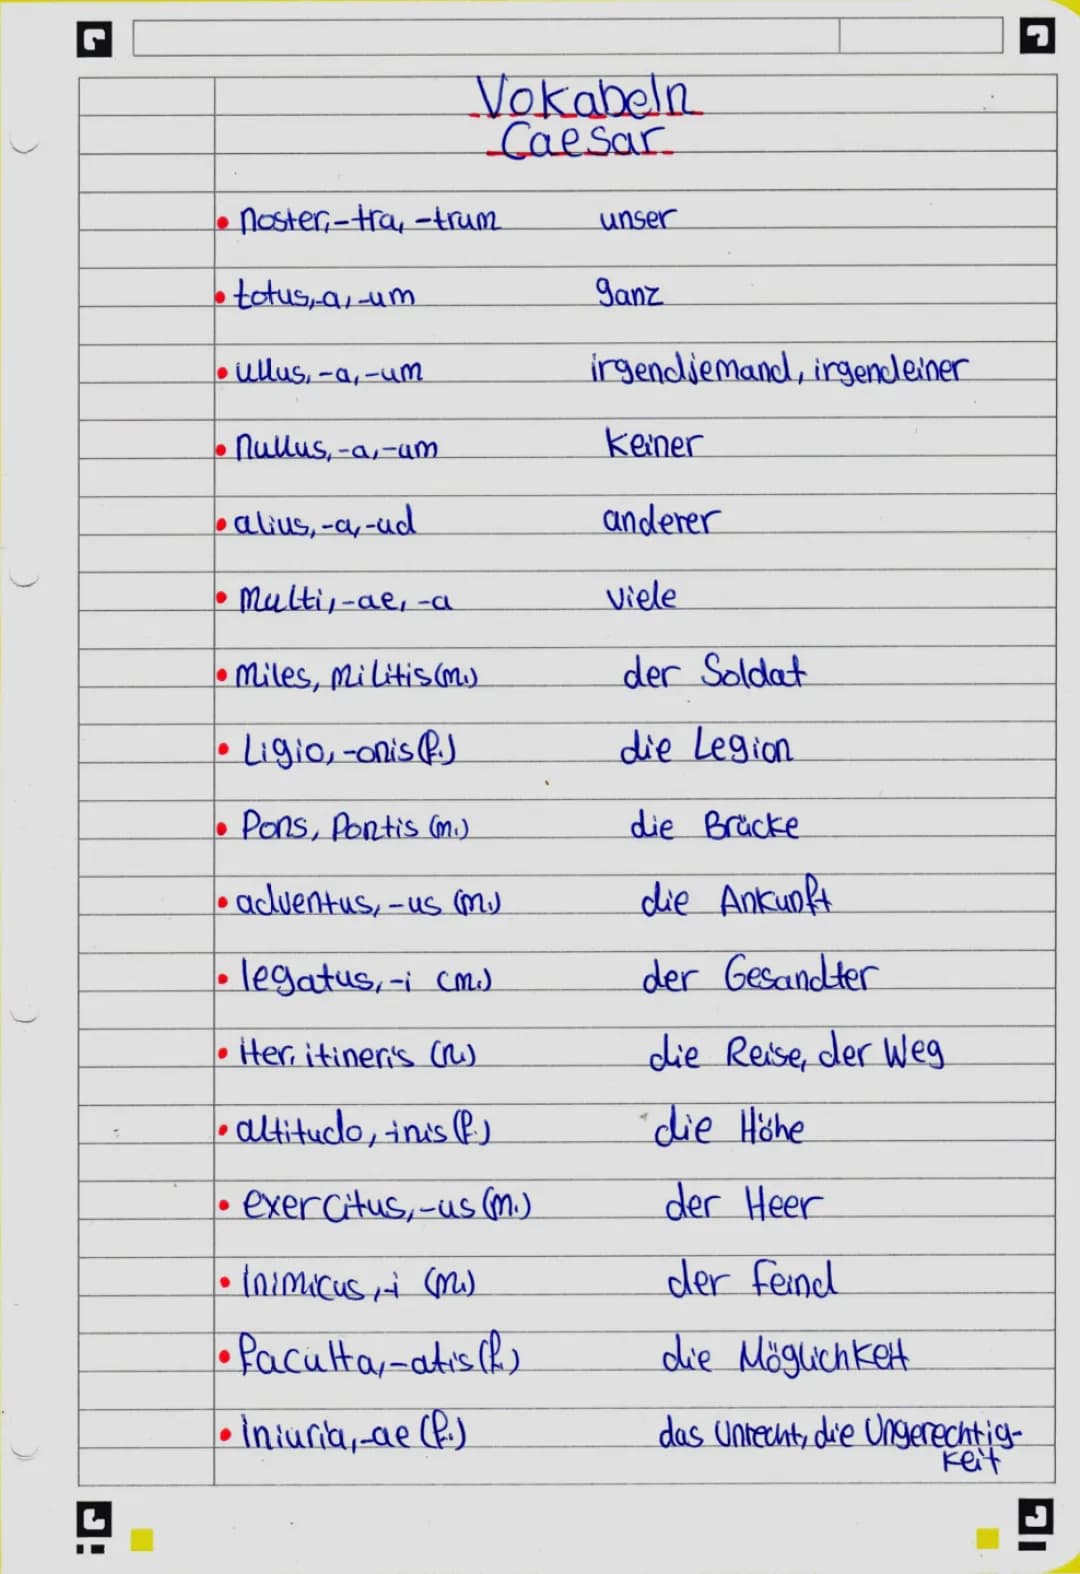 Vokabeln
Caesar
• noster,-tra, -trum unser
• totus,-a,-um ganz
• ullus,-a,-um irgendjemand, irgendeiner
• nullus,-a,-um keiner
• alius,-a,-ud anderer
• multi,-ae,-a viele
• miles, militis (m.) der Soldat
• Ligio,-onis (f.) die Legion
• Pons, Pontis (m.) die Brücke
• adventus,-us (m.) die Ankunft
• legatus,-i (m.) der Gesandter
• Iter, itineris (n.) die Reise, der Weg
• altitudo,-inis (f.) die Höhe
• exercitus,-us (m.) der Heer
• inimicus,-i (m.) der Feind
• faculta,-atis (f.) die Möglichkeit
• iniuria,-ae (f.) das Unrecht, die Ungerechtig-
keit